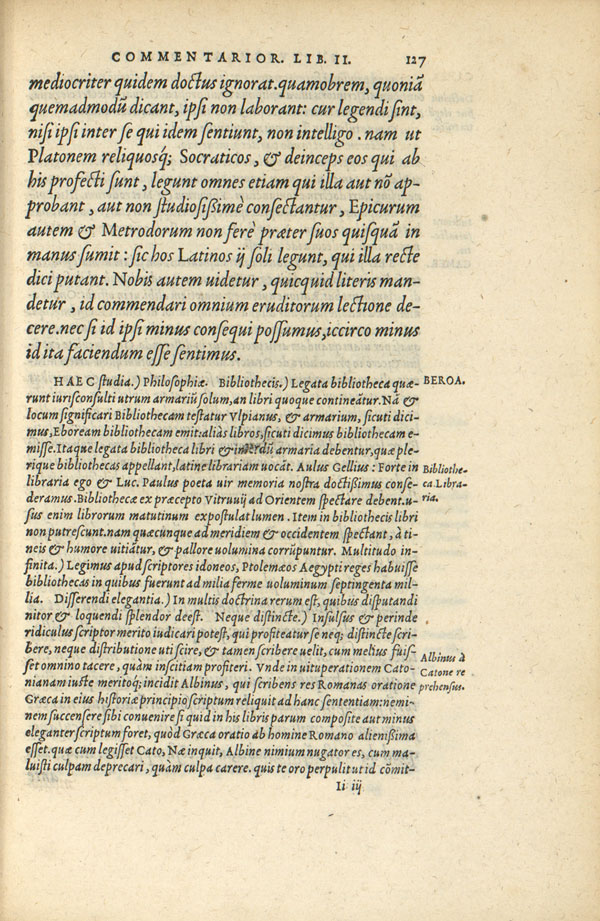 COMMENTARIOR. LIB. II. 127
mediocriter quidem doctus ignorat.quamobrem, quoniã
quemadmodũ dicant, ipsi non laborant: cur legendi sint,
nisi ipsi inter se qui idem sentiunt, non intelligo . nam ut
Platonem reliquosq; Socraticos, & deinceps eos qui ab
his profecti sunt, legunt omnes etiam qui illa aut nõ ap-
probant, aut non studiosißimè consectantur, Epicurum
autem & Metrodorum non ferè præter suos quisquã in
manus sumit : sic hos Latinos ij soli legunt, qui illa recte
dici putant. Nobis autem uidetur, quicquid literis man-
detur, id commendari omnium eruditorum lectione de-
cere.nec si id ipsi minus consequi possumus,iccirco minus
id ita faciendum esse sentimus.
HAEC studia.) Philosophiæ. Bibliothecis.) Legata bibliotheca quæ-
BEROA.
runt iurisconsulti utrum armariũ solum,an libri quoque contineãtur. Nã &
locum significari Bibliothecam testatur Vlpianus, & armarium, sicuti dici
mus, Eboream bibliothecam emit:aliàs libros,sicuti dicimus bibliothecam e-
misse.Itaque legata bibliotheca libri & interdũ armaria debentur,quæ ple-
rique bibliothecas appellant,latine librariam uocãt. Aulus Gellius : Forte in
Bibliothe-
libraria ego & Luc. Paulus poeta uir memoria nostra doctißimus conse-
ca Libra-
deramus.Bibliothecæ ex præcepto Vitruuij ad Orientem spectare debent.u-
ria.
sus enim librorum matutinum expostulat lumen. Item in bibliothecis libri
non putrescunt.nam quæcunque ad meridiem & occidentem spectant, à ti-
neis & humore uitiãtur, & pallore uolumina corrũpuntur. Multitudo in-
finita.) Legimus apud scriptores idoneos, Ptolemæos Aegypti reges habuisse
bibliothecas in quibus fuerunt ad milia ferme uoluminum septingenta mil-
lia. Disserendi elegantia.) In multis doctrina rerum est, quibus disputandi
nitor & loquendi splendor deest. Neque distincte.) Insulsus & perinde
ridiculus scriptor merito iudicari potest, qui profiteatur se neq; distincte scri-
bere, neque distributione uti scire, & tamen scribere uelit, cum melius fuis-
set omnino tacere, quàm inscitiam profiteri. Vnde in uituperationem Cato-
Albinus à
nianam iuste meritoq; incidit Albinus, qui scribens res Romanas oratione
Catone re
Græca in eius historiæ principio scriptum reliquit ad hanc sententiam:nemi-
prehensus.
nem succensere sibi conuenire si quid in his libris parum composite aut minus
eleganter scriptum foret, quòd Græca oratio ab homine Romano alienißima
esset. quæ cum legisset Cato, Næ inquit, Albine nimium nugator es, cum ma-
luisti culpam deprecari, quàm culpa carere. quis te oro perpulit ut id cõmit-
Ii iij